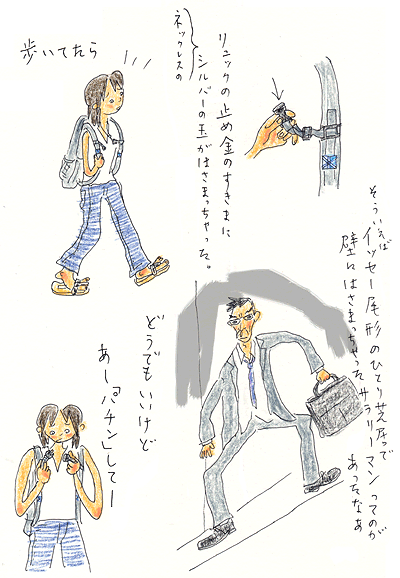 歩いてたら
リュックの止め金のすきまに
ネックレスの
シルバーの玉がはさまっちゃった。
そういえば
イッセー尾形のひとり芝居で
壁にはさまっちゃったサラリーマンってのが
あったなあ
どうでもいいけど
あー「パチン」してー